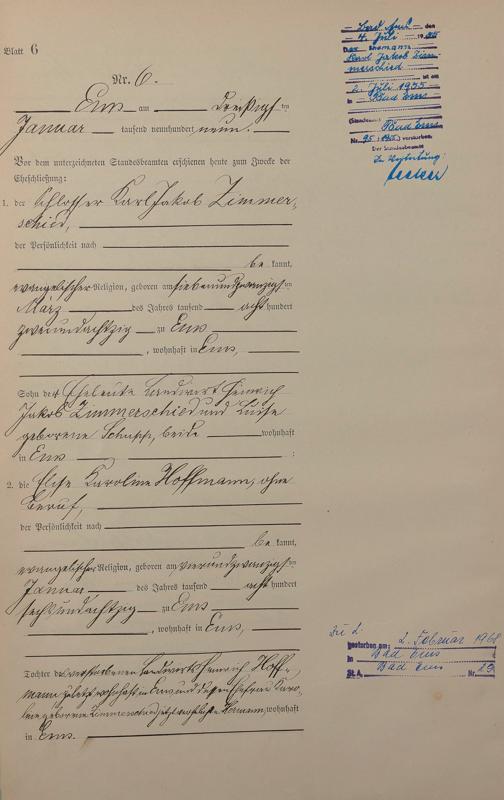 Blatt 6
Nr. 6.
Ems am dreißigsten
Januar tausend neunhundert neun.
Vor dem unterzeichneten Standesbeamten erschienen heute zum Zwecke der
Eheschließung:
1. der Schlosser Karl Jakob Zimmer-
schied,
der Persönlichkeit nach
be kannt,
evangelischer Religion, geboren am siebenundzwanzigsten
März des Jahres tausend acht hundert
zweiundachtzig zu Ems
, wohnhaft in Ems,
Sohn der Eheleute Landwirt Heinrich
Jakob Zimmerschied und Luise
geborene Schupp, beide wohnhaft
in Ems :
2. die Elise Karoline Hoffmann, ohne
Beruf,
der Persönlichkeit nach
be kannt,
evangelischer Religion, geboren am vierundzwanzigsten
Januar des Jahres tausend acht hundert
sechsundachtzig zu Ems
, wohnhaft in Ems,
Tochter des verstorbenen Landwirts Heinrich Hoff-
mann, zuletzt wohnhaft in Ems und dessen Ehefrau Karo-
line geborene Zimmerschied jetzt verehelichte Hermann, wohnhaft
in Ems.
Bad Ems den
4. Juli 19
Der Ehemann
Karl Jakob Zim-
merschied
ist am
Juli 1955
in Bad Ems
(Standesamt Bad Ems
Nr. 95/1955) verstorben.
Der Standesbeamte
In Vertretung
Zu 2.
gestorben am: 2. Februar 1968
in Bad Ems
St. A. Bad Ems Nr. 23